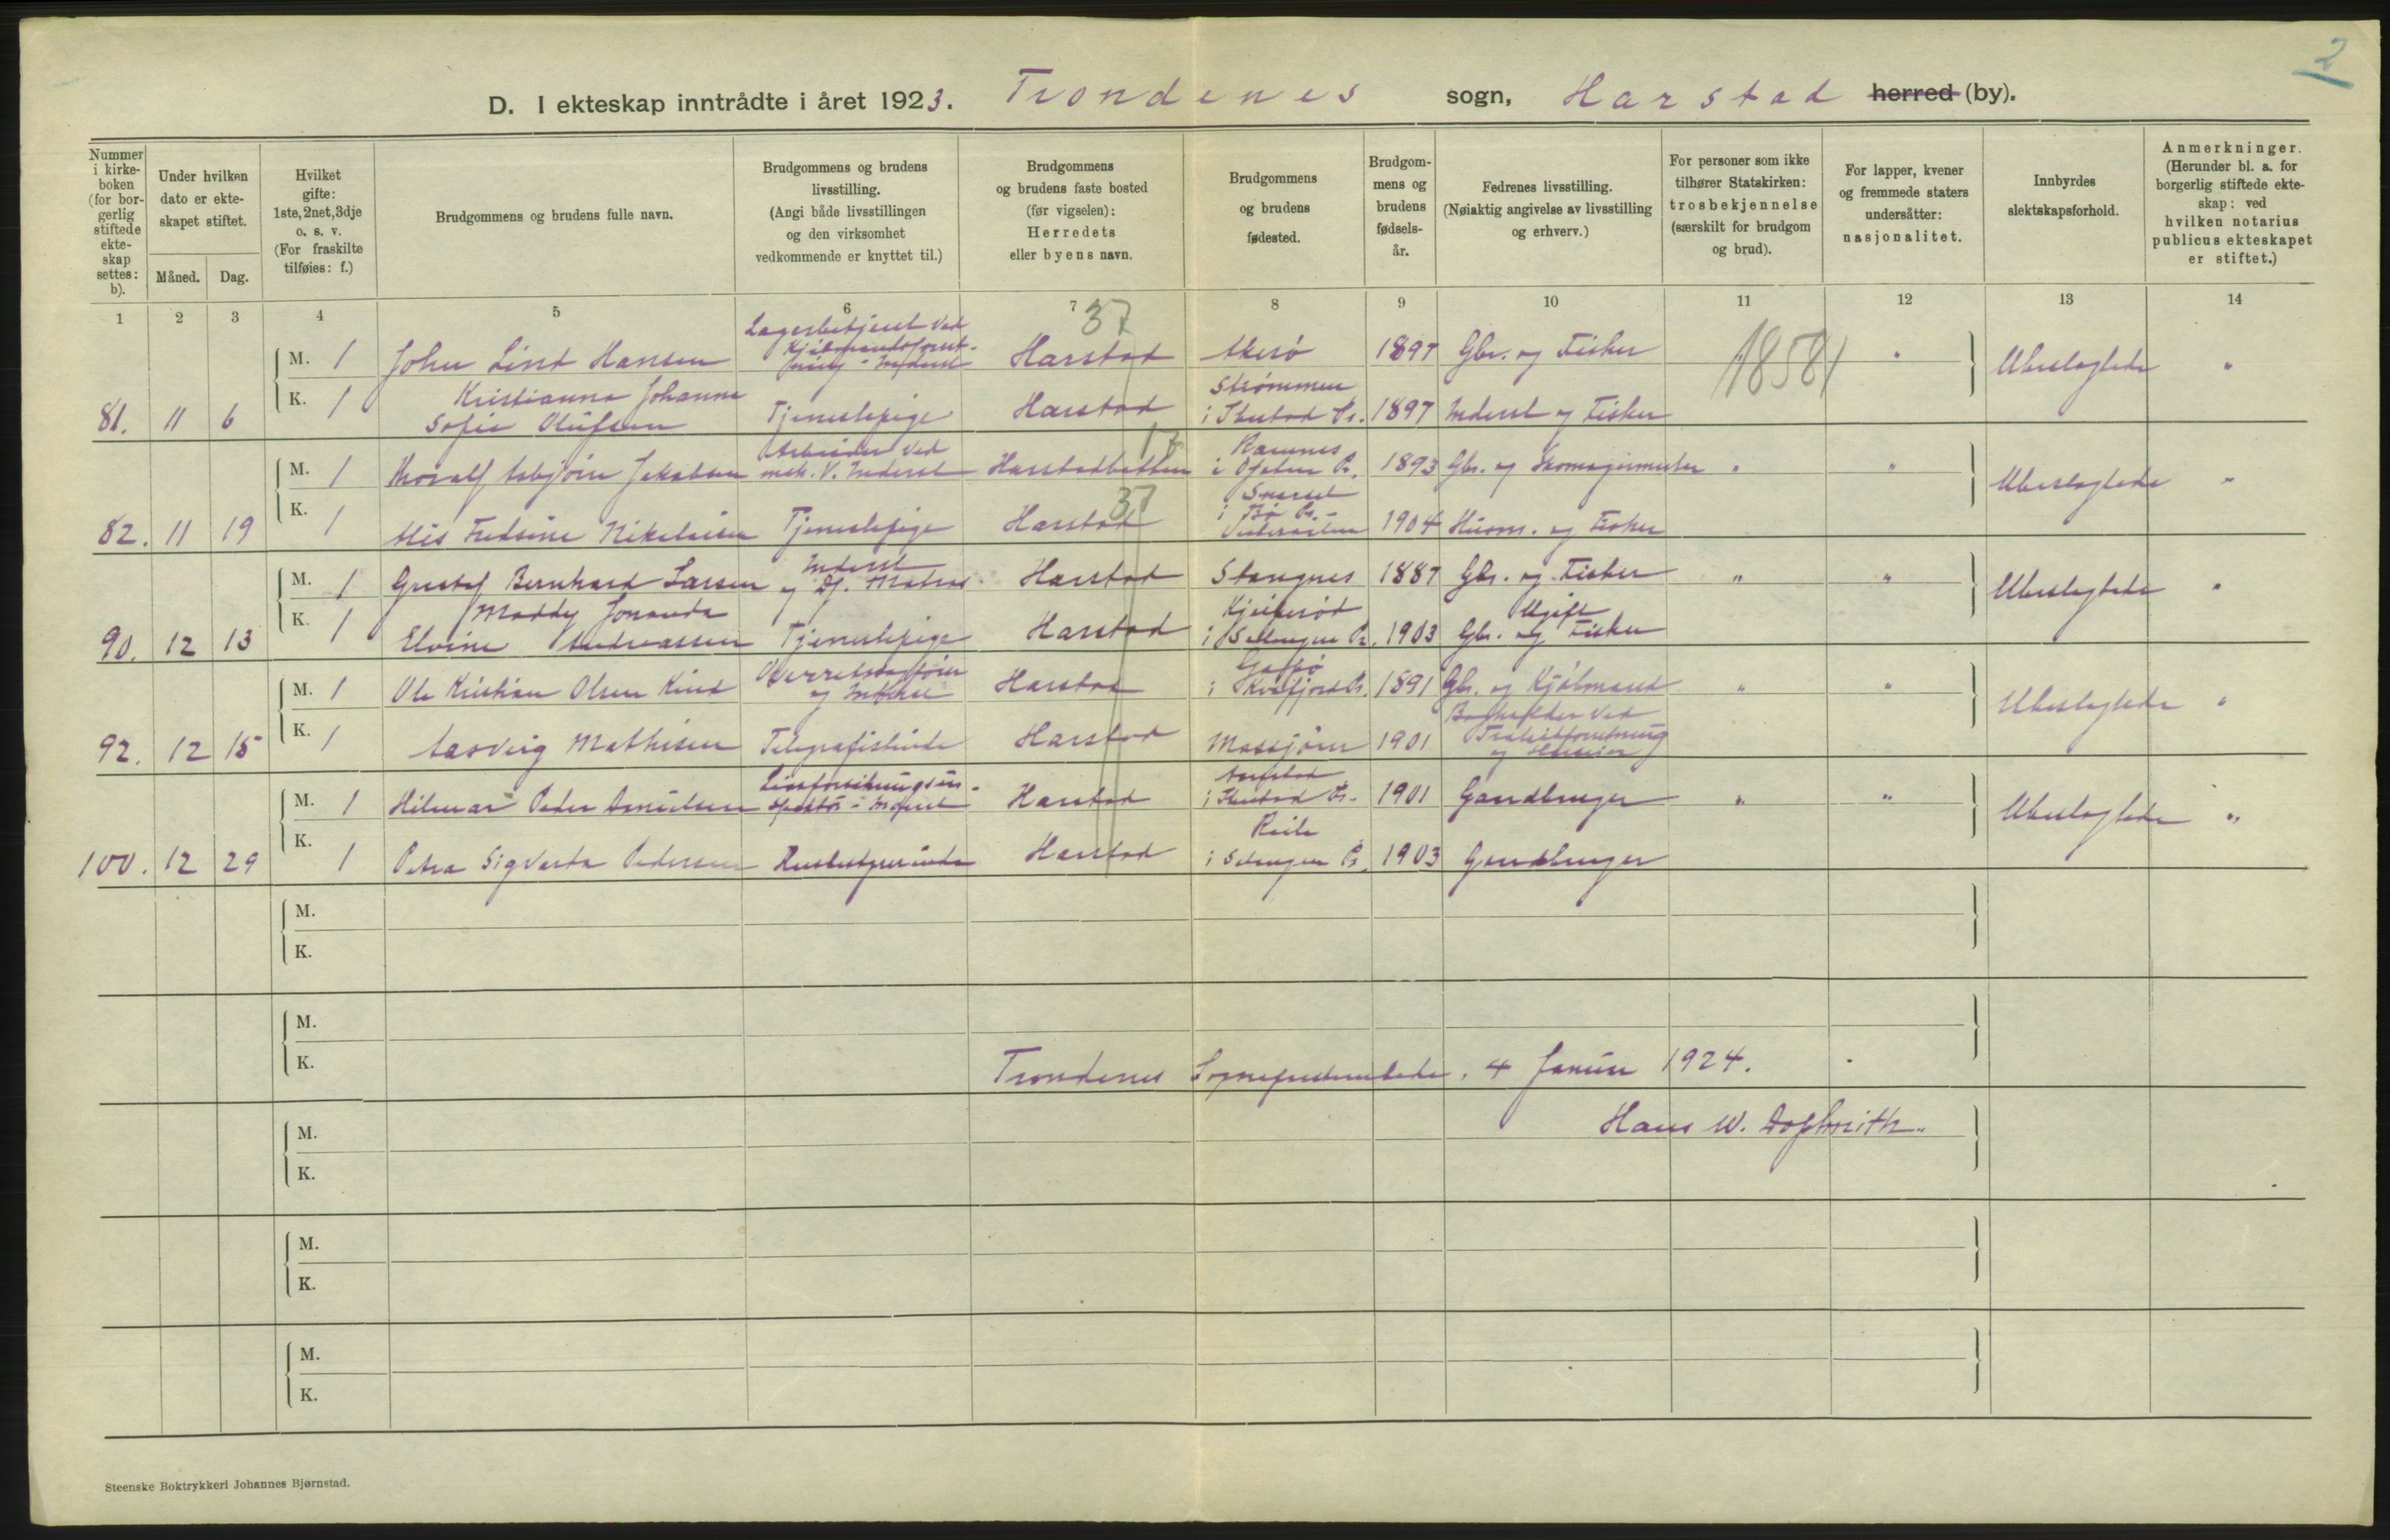 2
D. I ekteskap inntrådte i året 1923. Trondenes sogn, Harstad herred (by).
Nummer i kirkeboken (for borgerlig stiftede ekteskap settes: b).
Under hvilken dato er ekteskapet stiftet.
Måned. Dag.
Hvilket gifte: 1ste, 2net, 3dje o. s. v. (For fraskilte tilføies: f.)
Brudgommens og brudens fulle navn.
Brudgommens og brudens livsstilling. (Angi både livsstillingen og den virksomhet vedkommende er knyttet til.)
Brudgommens og brudens faste bosted (før vigselen): Herredets eller byens navn.
Brudgommens og brudens fødested.
Brudgommens og brudens fødselsår.
Fedrenes livsstilling. (Nøiaktig angivelse av livsstilling og erhverv.)
For personer som ikke tilhører Statskirken: trosbekjennelse (særskilt for brudgom og brud).
For lapper, kvener og fremmede staters undersåtter: nasjonalitet.
Innbyrdes slektskapsforhold.
Anmerkninger. (Herunder bl. a. for borgerlig stiftede ekteskap: ved hvilken notarius publicus ekteskapet er stiftet.)
1 2 3 4 5 6 7 8 9 10 11 12 13 14
37
M. 1 John Lind Hansen Lagerbetjent ved Harstad 1897 Gbr. og Fisker 18581 " Ubeslegtede "
81. 11 6 K. 1 Kristianna Johanna Sofie Olufsen Tjenestepige Harstad Strømmen i 1897 Inderst og Fisker
17
M. 1 Asbjørn Jakobsen Arbeider ved mek. V. Inderst Harstadbotten i Ofoten Pr. 1893 Gbr. og Skomagermester " " Ubeslegtede "
37
82. 11 19 K. 1 Fredsine Nikolaisen Tjenestepige Harstad i Bø Pr. 1904 Husm. og Fisker
M. 1 Gustaf Bernhard Larsen Inderst og Matros Harstad Stangnes 1887 Gbr. og Fisker " " Ubeslegtede "
90. 12 13 K. 1 Maddy Jonanda Elvine Andreassen Tjenestepige Harstad i Salangen Pr. 1903 Ugift Gbr. og Fisker
M. 1 Ole Kristian Olsen Overretssagfører og Harstad i Kvæfjord Pr. 1891 Gbr. og Kjøbmand " " Ubeslegtede "
92. 12 15 K. 1 Aasveig Mathisen Telegrafistinde Harstad Mosjøen 1901 Bogholder ved
M. 1 Hilmar Peder Livsforsikringsins- Harstad i 1901 Gaardbruger " " Ubeslegtede "
100. 12 29 K. 1 Petra Sigvarda Pedersen Husbestyrerinde Harstad i Salangen Pr. 1903 Gaardbruger
M.
K.
M.
K.
Trondenes Sogneprestembede, 4 Januar 1924.
M.
Hans W.
K.
M.
K.
M.
K.
Steenske Boktrykkeri Johannes Bjørnstad.